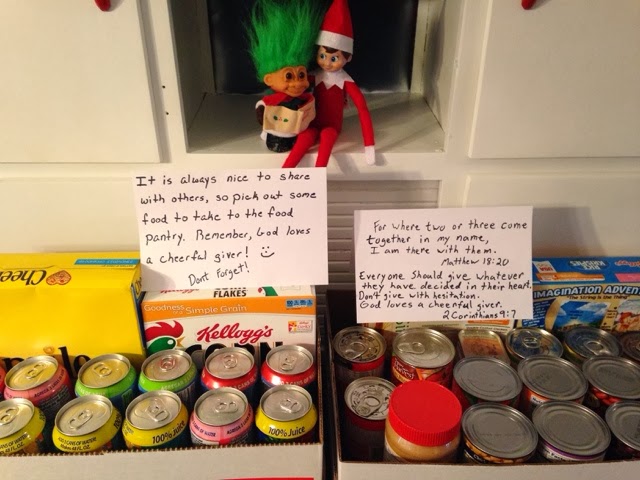 It is always nice to share
with others, so pick out some
food to take to the food
pantry. Remember, God loves
a cheerful giver!
Dont Forget!
For where two or three come
together in my name,
I am there with them.
Matthew 18:20
Everyone should give whatever
they have decided in their heart.
Don't give with hesitation.
God loves a cheerful giver.
2 Corinthians 9:7
Chee
FLAKES
Goodness Simple Grain
Kellogg's
IMAGINATION ADVEN
100% Juice
100% Juice